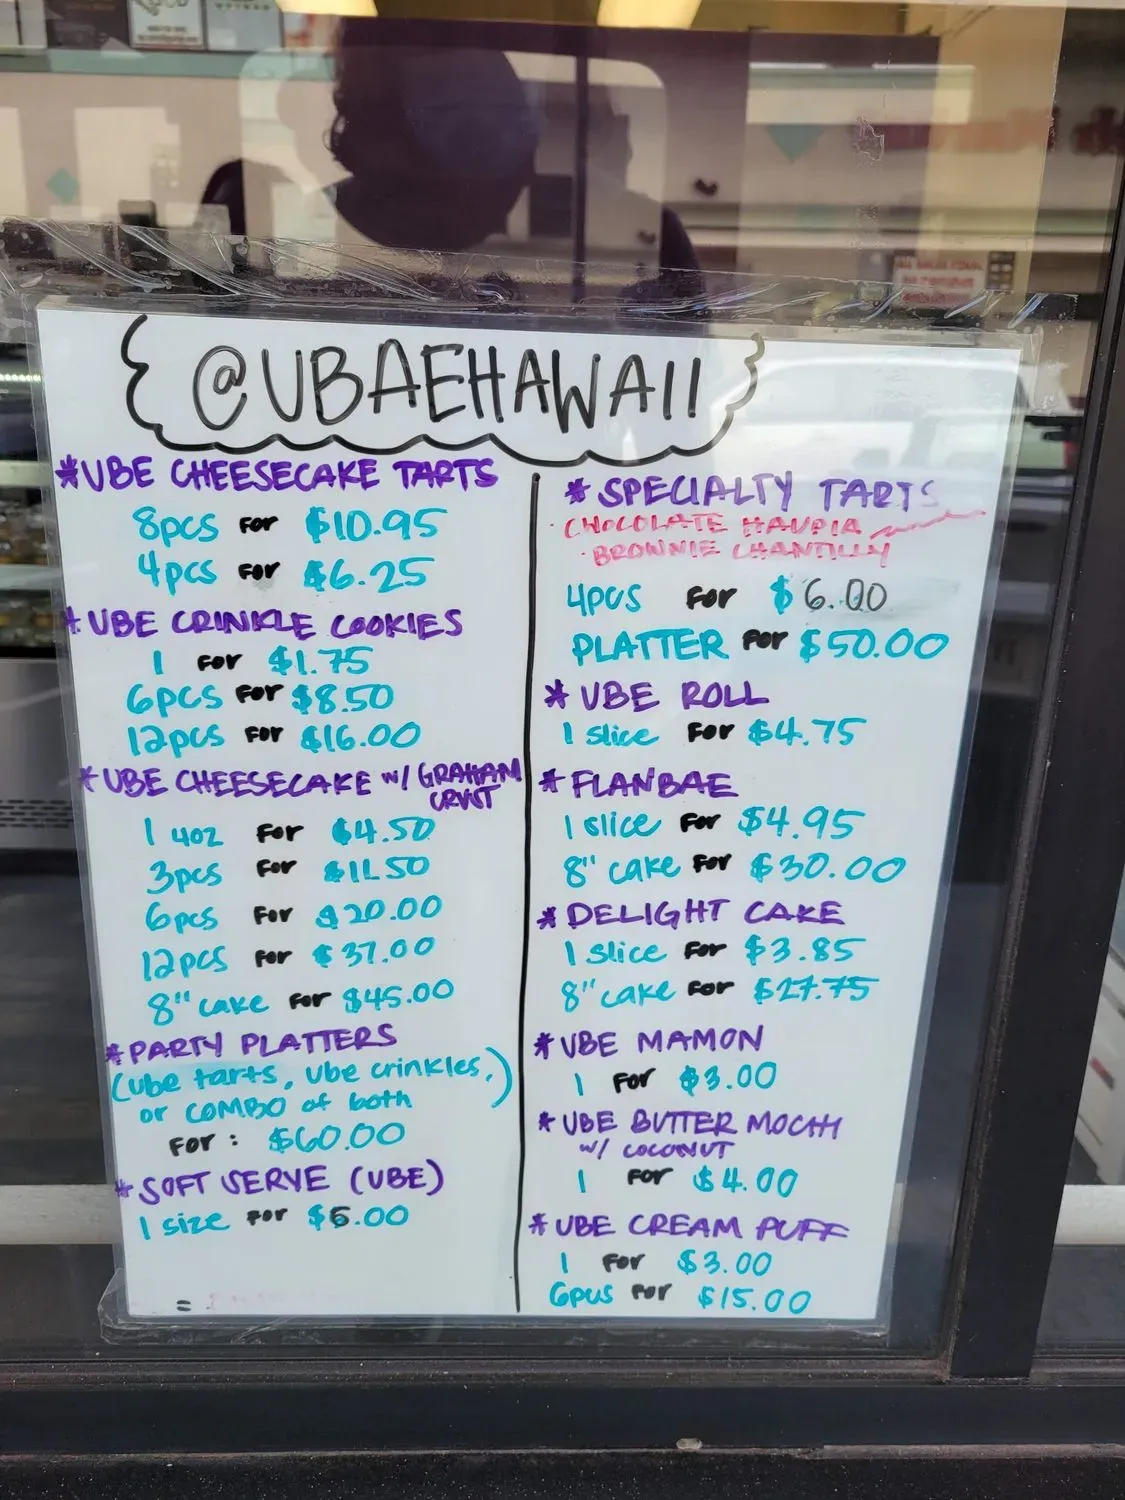 @UBAEHAWAII
*UBE CHEESECAKE TARTS
8pcs FOR $10.95
4pcs FOR $6.25
*UBE CRINKLE COOKIES
1 FOR $1.75
6pcs FOR $8.50
12pcs FOR $16.00
*UBE CHEESECAKE w/ GRAHAM
CRUST
1 4oz FOR $4.50
3pcs FOR $11.50
6pcs FOR $20.00
12pcs FOR $37.00
8" cake FOR $45.00
*PARTY PLATTERS
(ube tarts, ube crinkles,)
or COMBO of both
FOR: $60.00
*SOFT SERVE (UBE)
1 size FOR $6.00
*SPECIALTY TARTS
· CHOCOLATE HAUPIA
· BROWNIE CHANTILLY
4pcs FOR $6.00
PLATTER FOR $50.00
*UBE ROLL
1 slice FOR $4.75
*FLANBAE
1 slice FOR $4.95
8" cake FOR $30.00
*DELIGHT CAKE
1 slice FOR $3.85
8" cake FOR $27.75
*UBE MAMON
1 FOR $3.00
*UBE BUTTER MOCHI
w/ COCONUT
1 FOR $4.00
*UBE CREAM PUFF
1 FOR $3.00
6pcs FOR $15.00